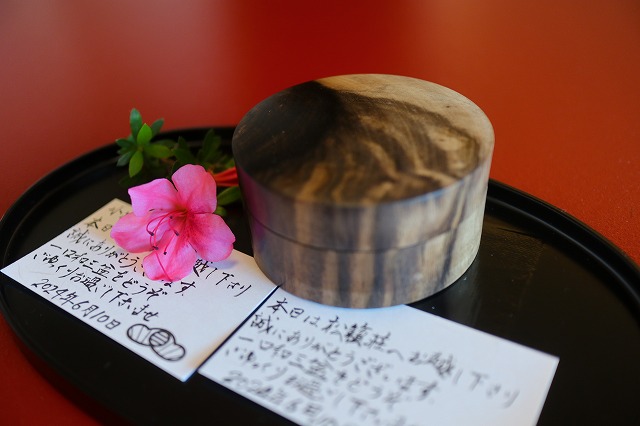 本日 下さり
誠にありがとうございます。
一口和三盆をどうぞ
ごゆっくりお過し下さいませ
2024年6月10日
本日は へお越し下さり
誠にありがとうございます。
一口和三盆をどうぞ
ごゆっくりお過し下さい
2024年6月